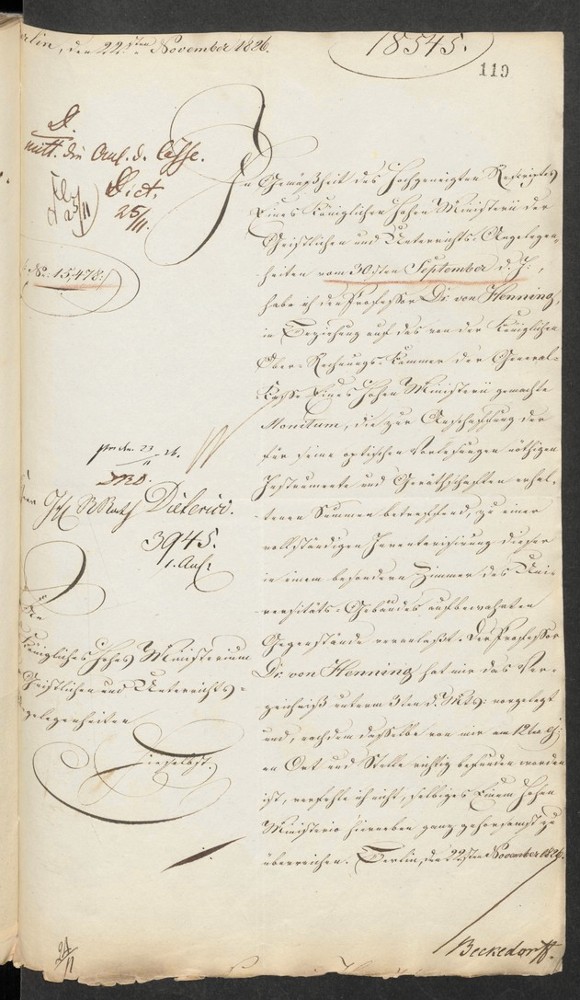 Berlin, den 22sten November 1826.
18545.
119
mitt. die Anl. d. Casse.
Dict.
25/11.
No: 15,478.
In Gemäßheit des hochgeneigten Rescriptes
Eines Königlichen Hohen Ministerii der
Geistlichen und Unterrichts-Angelegen-
heiten vom 30sten September d. J.,
habe ich den Professor Dr. von Henning,
in Beziehung auf das von der Königlichen
Ober-Rechnungs-Kammer der General-
Casse Eines Hohen Ministerii gemachte
Monitum, die zur Anschaffung der
für seine optischen Vorlesungen nöthigen
Instrumente und Geräthschaften erhal-
tenen Summen betreffend, zu einer
vollständigen Inventarisirung dieser
in einem besondern Zimmer des Uni-
versitäts-Gebäudes aufbewahrten
Gegenstände veranlaßt. Der Professor
Dr. von Henning hat mir das Ver-
zeichniß unterm 3ten d. Mts. vorgelegt
und, nachdem dasselbe von mir am 12ten ej.
an Ort und Stelle richtig befunden worden
ist, verfehle ich nicht, selbiges Einem Hohen
Ministerio hierneben ganz gehorsamst zu
überreichen. Berlin, den 22sten November 1826.
Beckedorff.
Dieterici.
3945.
1. Anl.
Königliches Hohes Ministerium
Geistlichen und Unterrichts-
gelegenheiten
hieselbst.
24/11